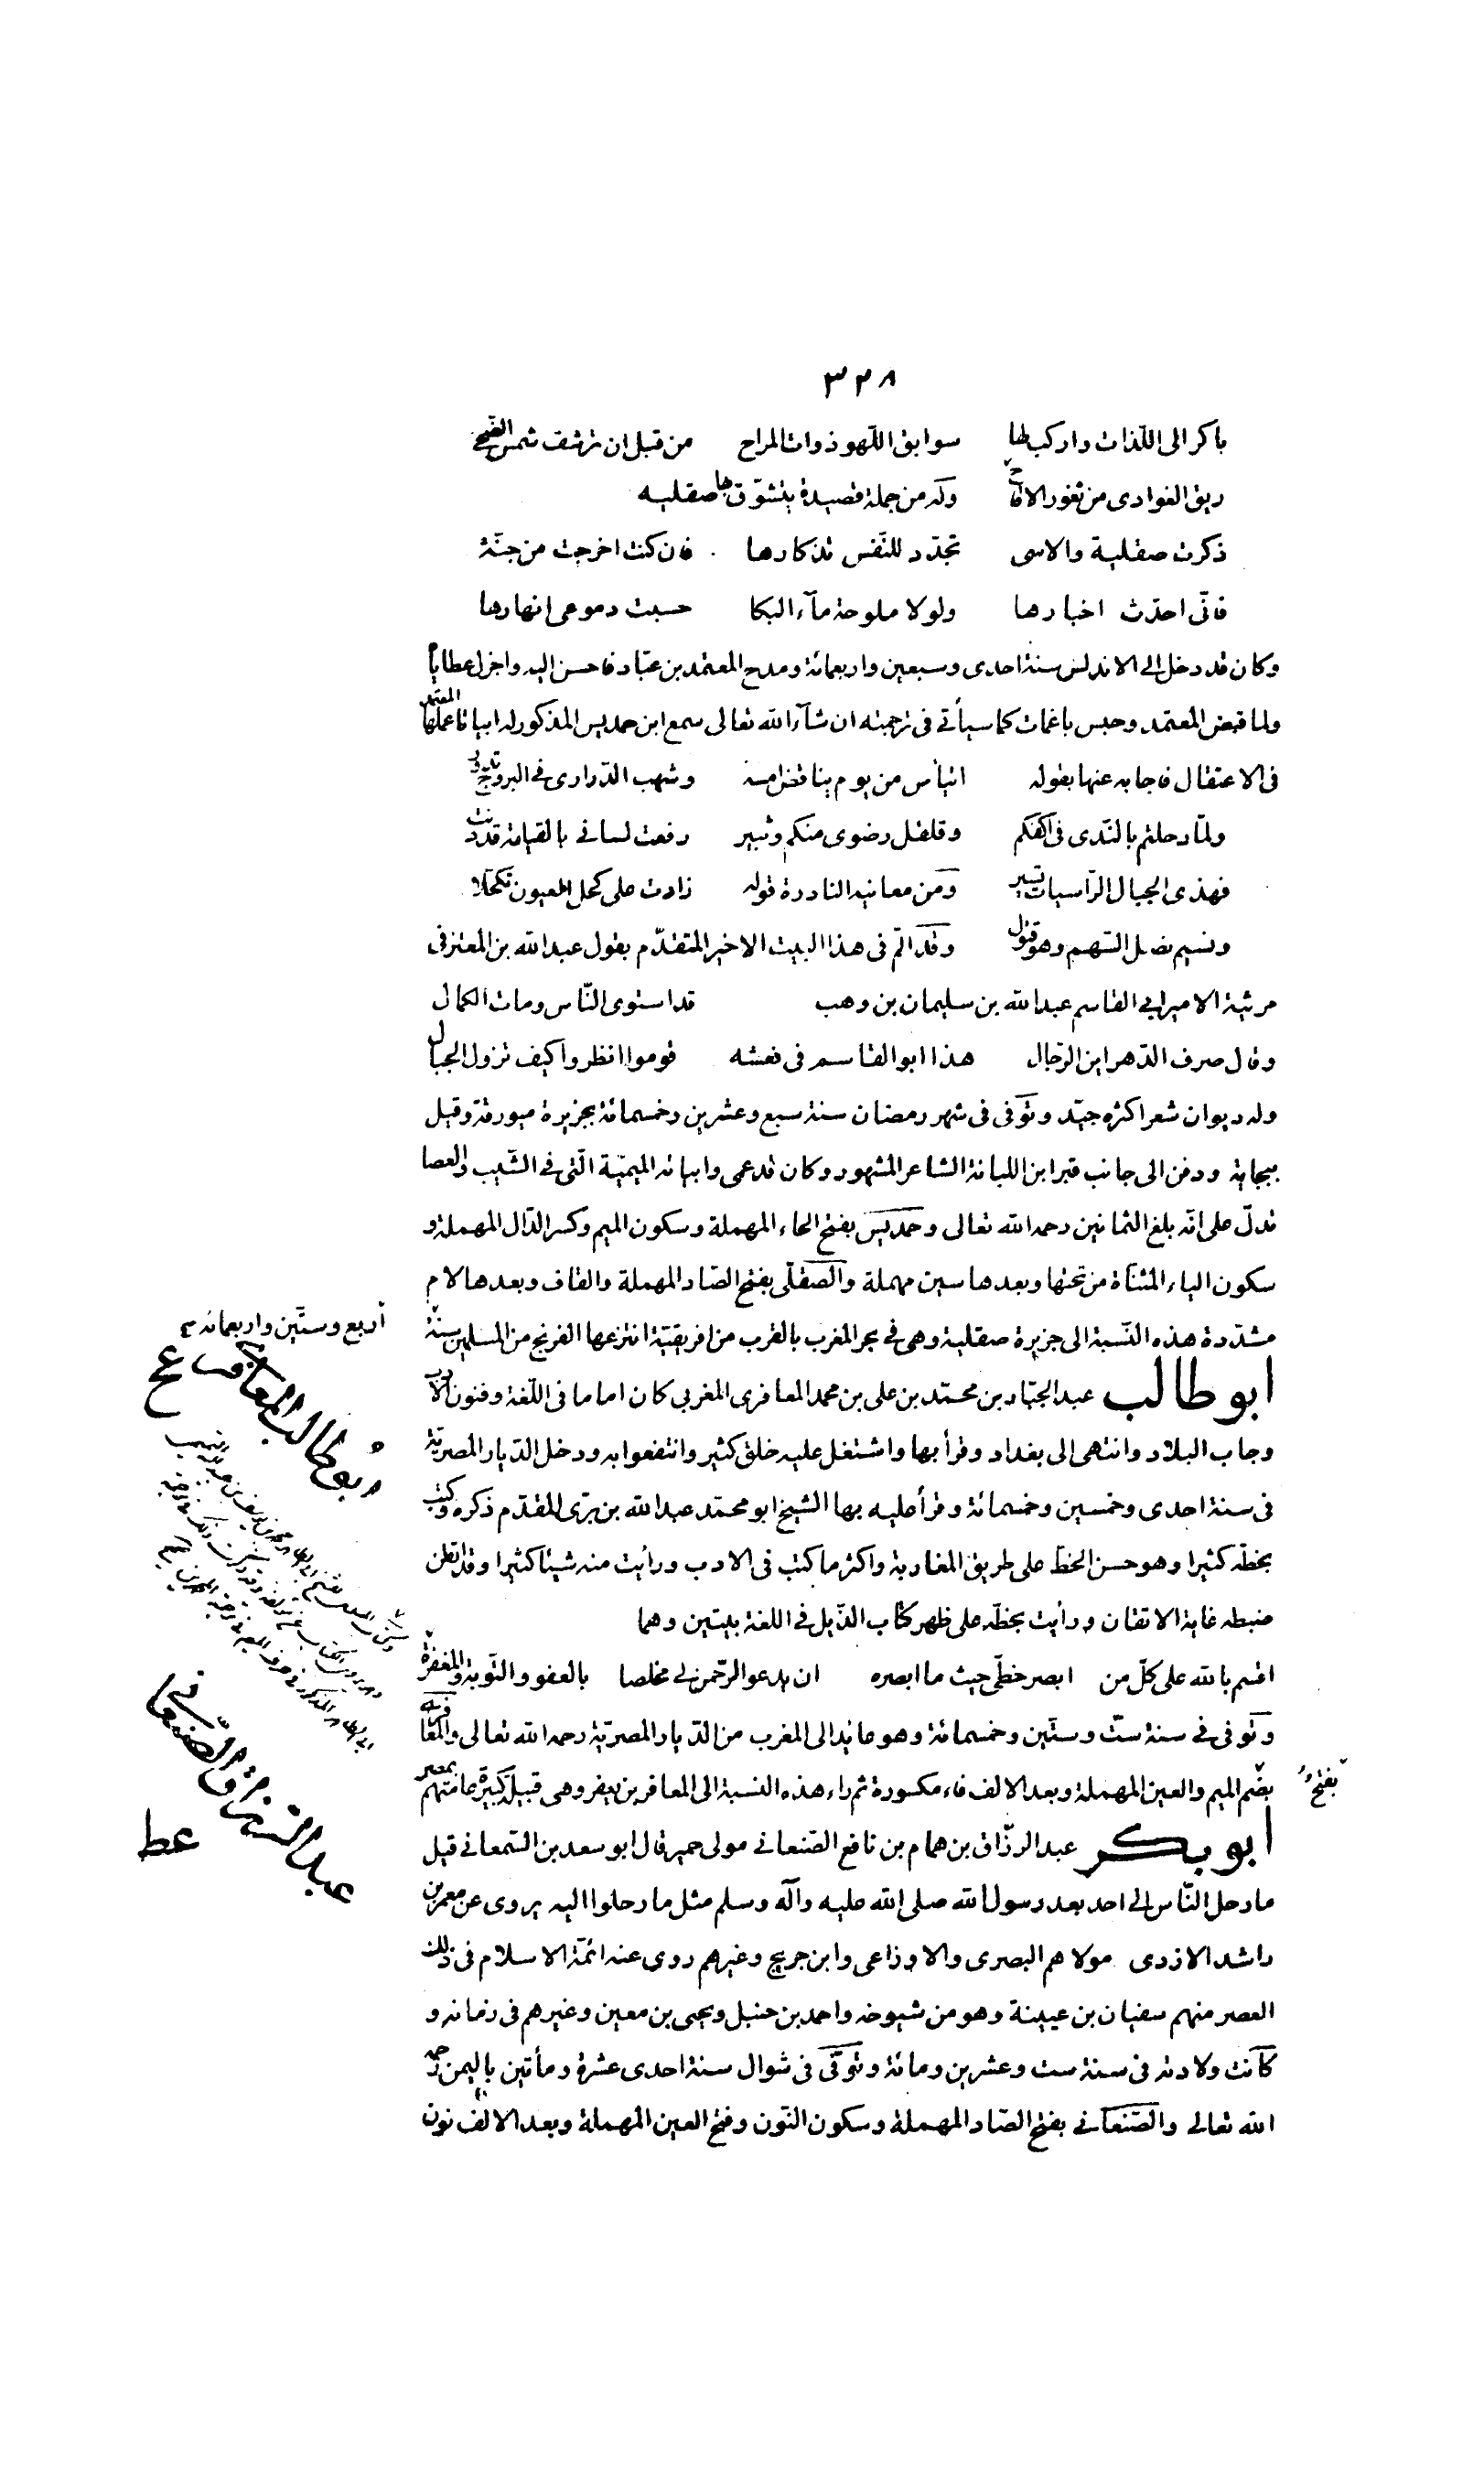 ٣٢٨
باكر الى اللّذات واركب لها سوابق اللّهو ذوات المراح من قبل ان ترشف شمس الضّحى
ريق الغوادى من ثغور الاقاح وله من جملة قصيدة يتشوّق بها صقليه
ذكرت صقلية والاسى تجدّد للنّفس تذكارها فان كنت اخرجت من جنّة
فانّى احدّث اخبارها ولولا ملوحة مآء البكا حسبت دموعى انهارها
وكان قد دخل الى الاندلس سنة احدى وسبعين واربعمائة ومدح المعتمد بن عبّاد فاحسن اليه واجزل عطاياه
ولما قبض المعتمد وحبس باغمات كما سيأتى فى ترجمته ان شآء الله تعالى سمع ابن حمديس المذكور له ابياتا عملها المعتمد
فى الاعتقال فاجابه عنها بقوله اتيأس من يوم يناقض امسه وشهب الدّرارى فى البروج تدور
ولمّا رحلتم بالنّدى فى اكفكم وقلقل رضوى منكم وثبير رفعت لسانى بالقيامة قد دنت
فهذى الجبال الرّاسيات تسير ومن معانيه النادرة قوله زادت على كحل العيون تكحّلا
ونسيم نصل السّهم وهو قتول وقد المّ فى هذا البيت الاخير المتقدّم بقول عبد الله بن المعتز فى
مرثية الامير ابى القاسم عبد الله بن سليمان بن وهب قد استوى النّاس ومات الكمال
وقال صرف الدّهر اين الرّجال هذا ابو القاسم فى نعشه قوموا انظروا كيف تزول الجبال
وله ديوان شعر اكثره جيّد وتوّفى فى شهر رمضان سنة سبع وعشرين وخمسمائة بجزيرة ميورقة وقيل
ببجاية ودفن الى جانب قبر ابن اللبانة الشاعر المشهور وكان قد عمى وابياته الميميّة الّتى فى الشّيب والعصا
تدلّ على انّه بلغ الثمانين رحمه الله تعالى وحمديس بفتح الحاء المهملة وسكون الميم وكسر الدّال المهملة و
سكون الياء المثنّاة من تحتها وبعدها سين مهملة والصّقلّى بفتح الصّاد المهملة والقاف وبعدها لام
مشدّدة هذه النّسبة الى جزيرة صقلية وهى فى بحر المغرب بالقرب من افريقيّة انتزعها الفرنج من المسلمين سنة
أربع وستّين واربعمائه
ابو طالب المعافرى
ابو طالب عبد الجبّار بن محمّد بن على بن محمد المعافرى المغربى كان اماما فى اللّغة وفنون الادب
وجاب البلاد وانتهى الى بغداد وقرأ بها واشتغل عليه خلق كثير وانتفعوا به ودخل الدّيار المصريّة
فى سنة احدى وخمسين وخمسمائة وقرأ عليه بها الشيخ ابو محمّد عبد الله بن برّى المقدّم ذكره وكتب
بخطّه كثيرا وهو حسن الخطّ على طريق المغاربة واكثر ما كتب فى الادب ورأيت منه شيئا كثيرا وقد اتقن
ضبطه غاية الاتقان ورأيت بخطّه على ظهر كتاب الذّيل فى اللغة بيتين وهما
اقسم بالله على كلّ من ابصر خطّى حيث ما ابصره ان يدعو الرّحمن لى مخلصا بالعفو والتّوبة والمغفرة
وتوّفى فى سنة ستّ وستّين وخمسمائة وهو عائد الى المغرب من الدّيار المصريّة رحمه الله تعالى والمعافرى
بضّم الميم والعين المهملة وبعد الالف فاء مكسورة ثم راء هذه النسبة الى المعافر بن يعفر وهى قبيلة كبيرة عامّتهم بمصر
بفتح
ابو بكر عبد الرزّاق بن همام بن نافع الصّنعانى مولى حمير قال ابو سعد بن السّمعانى قيل
عبد الرّزاق الصّنعانى
عط
ما رحل النّاس الى احد بعد رسول الله صلى الله عليه وآله وسلم مثل ما رحلوا اليه يروى عن معمر بن
راشد الازدى مولاهم البصرى والاوزاعى وابن جريج وغيرهم روى عنه ائمّة الاسلام فى ذلك
العصر منهم سفيان بن عيينة وهو من شيوخه واحمد بن حنبل ويحيى بن معين وغيرهم فى زمانه و
كانت ولادته فى سنة ست وعشرين ومائة وتوّفى فى شوال سنة احدى عشرة ومأتين باليمن رحمه
الله تعالى والصّنعانى بفتح الصّاد المهملة وسكون النّون وفتح العين المهملة وبعد الالف نون